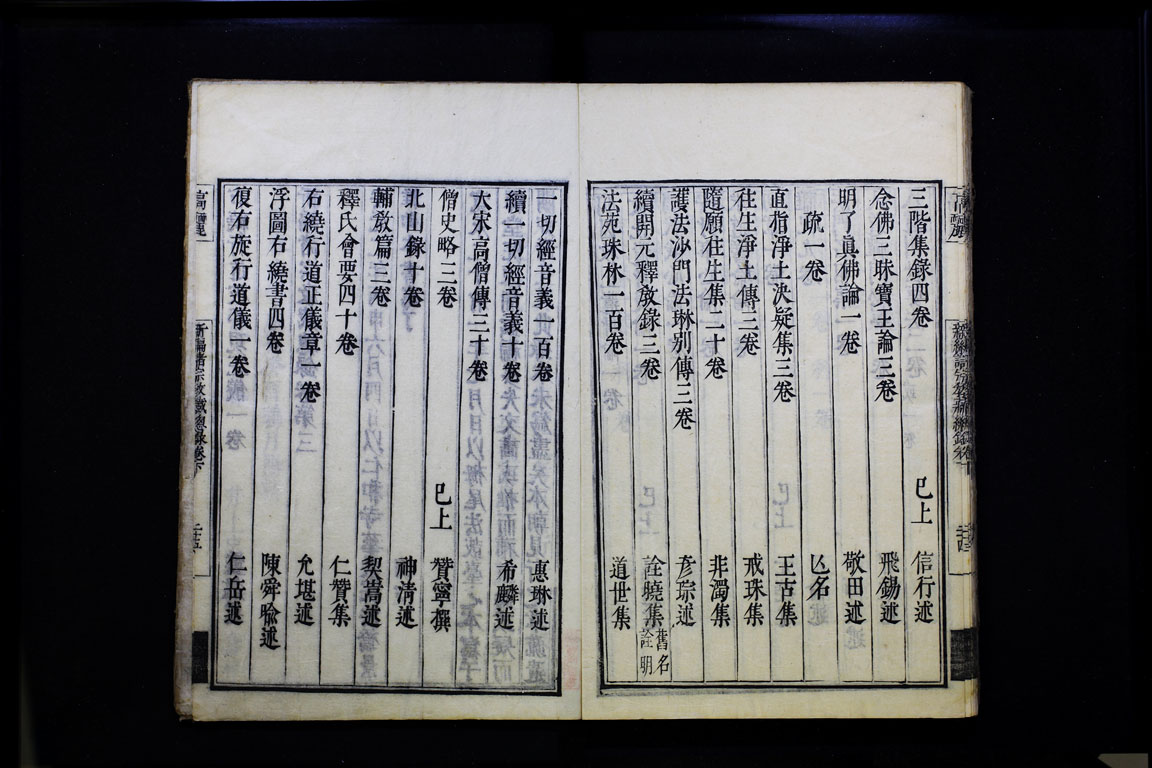 三階集錄四卷 巳上 信行述
念佛三昧寶王論三卷 飛錫述
明了眞佛論一卷 敬田述
疏一卷 亾名
直指淨土決疑集三卷 王古集
往生淨土傳三卷 戒珠集
隨願往生集二十卷 非濁集
護法沙門法琳別傳三卷 彥琮述
續開元釋敎錄三卷 詮曉集 舊名詮明
法苑珠林一百卷 道世集
一切經音義一百卷 惠琳述
續一切經音義十卷 希麟述
大宋高僧傳三十卷
僧史略三卷 巳上 贊寧撰
北山錄十卷 神清述
輔敎篇三卷 契嵩述
釋氏會要四十卷 仁贊集
右繞行道正儀章一卷 允堪述
浮圖右繞書四卷 陳舜兪述
復右旋行道儀一卷 仁岳述
高麗
新編諸宗敎藏總錄卷下
二十五